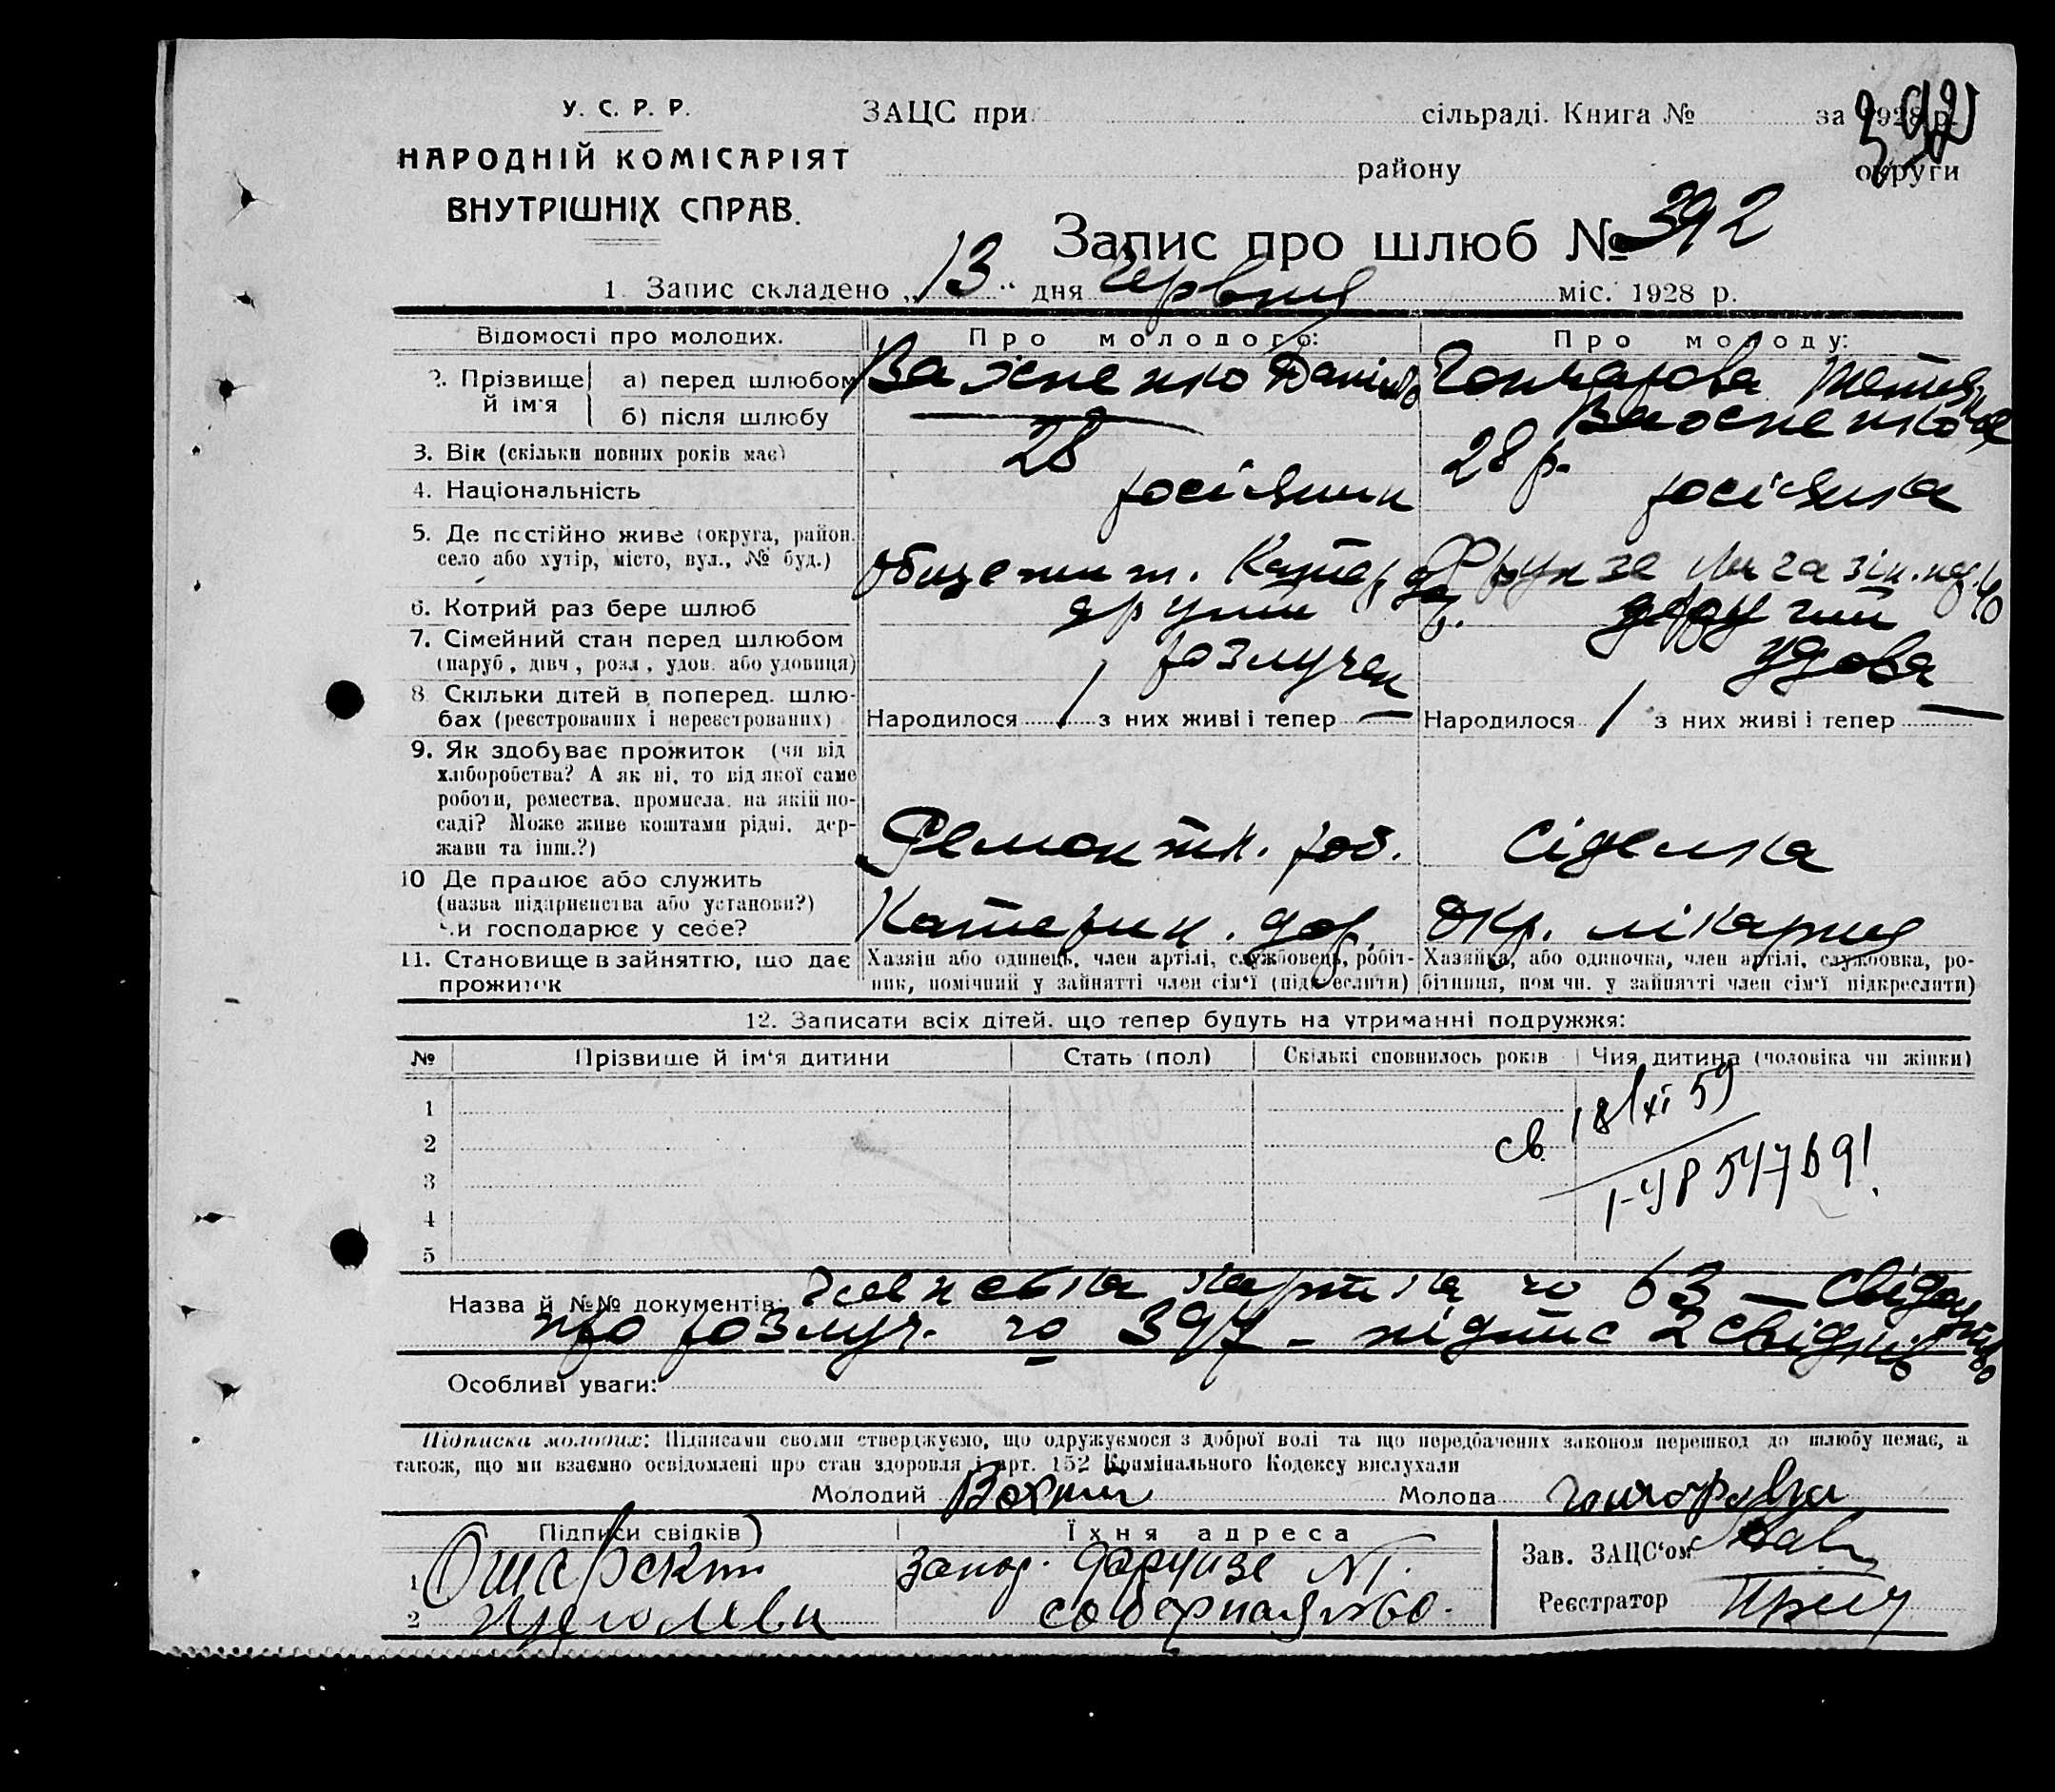 У. С. Р. Р.
НАРОДНІЙ КОМІСАРІЯТ
ВНУТРІШНІХ СПРАВ.
ЗАЦС при сільраді. Книга № за 1928 р.
392
району округи
Запис про шлюб № 392
1. Запис складено „13“ дня Червня міс. 1928 р.
Відомості про молодих. Про молодого: Про молоду:
2. Прізвище й ім'я а) перед шлюбом Важненко Данило Гончарова Тетяна
б) після шлюбу — Важненкова
3. Вік (скільки повних років має) 28 28 р.
4. Національність росіянин росіянка
5. Де постійно живе (округа, район.
село або хутір, місто, вул., № буд.) общежит. Катер. дор. Фрунзе
6. Котрий раз бере шлюб другий другий
7. Сімейний стан перед шлюбом
(паруб., дівч., розл., удов. або удовиця) розлучен удова
8. Скільки дітей в поперед. шлю-
бах (реєстрованих і нереєстрованих) Народилося 1 з них живі і тепер — Народилося 1 з них живі і тепер —
9. Як здобуває прожиток (чи від
хліборобства? А як ні, то від якої саме
роботи, ремества, промисла, на якій по-
саді? Може живе коштами рідні, дер-
жави та інш.?) Ремонтн. роб. Сіделка
10 Де працює або служить
(назва підприємства або установи?)
чи господарює у себе? Катерин. дор. Окр. лікарня
11. Становище в зайняттю, що дає
прожиток
Хазяїн або одинець, член артілі, службовець, робіт-
ник, помічний у зайнятті член сім'ї (підкреслити)
Хазяйка, або одиночка, член артілі, службовка, ро-
бітниця, пом чн. у зайнятті член сім'ї підкреслити)
12. Записати всіх дітей, що тепер будуть на утриманні подружжя:
№ Прізвище й ім'я дитини Стать (пол) Скількі сповнилось років Чия дитина (чоловіка чи жінки)
1
2
3
4
5
св. 18/XI 59
Назва й №№ документів: картка № 63 — свідоцтво
про розлуч. № 397 — підпис 2 свідків
Особливі уваги:
Підписка молодих: Підписами своїми стверджуємо, що одружуємося з доброї волі та що передбачених законом перешкод до шлюбу немає, а
також, що ми взаємно освідомлені про стан здоровля і арт. 152 Кримінального Кодексу вислухали
Молодий Молода Гончарова
Підписи свідків Їхня адреса
1 Запор. Фрунзе №1.
2 Соборная №60.
Зав. ЗАЦС'ом
Реєстратор